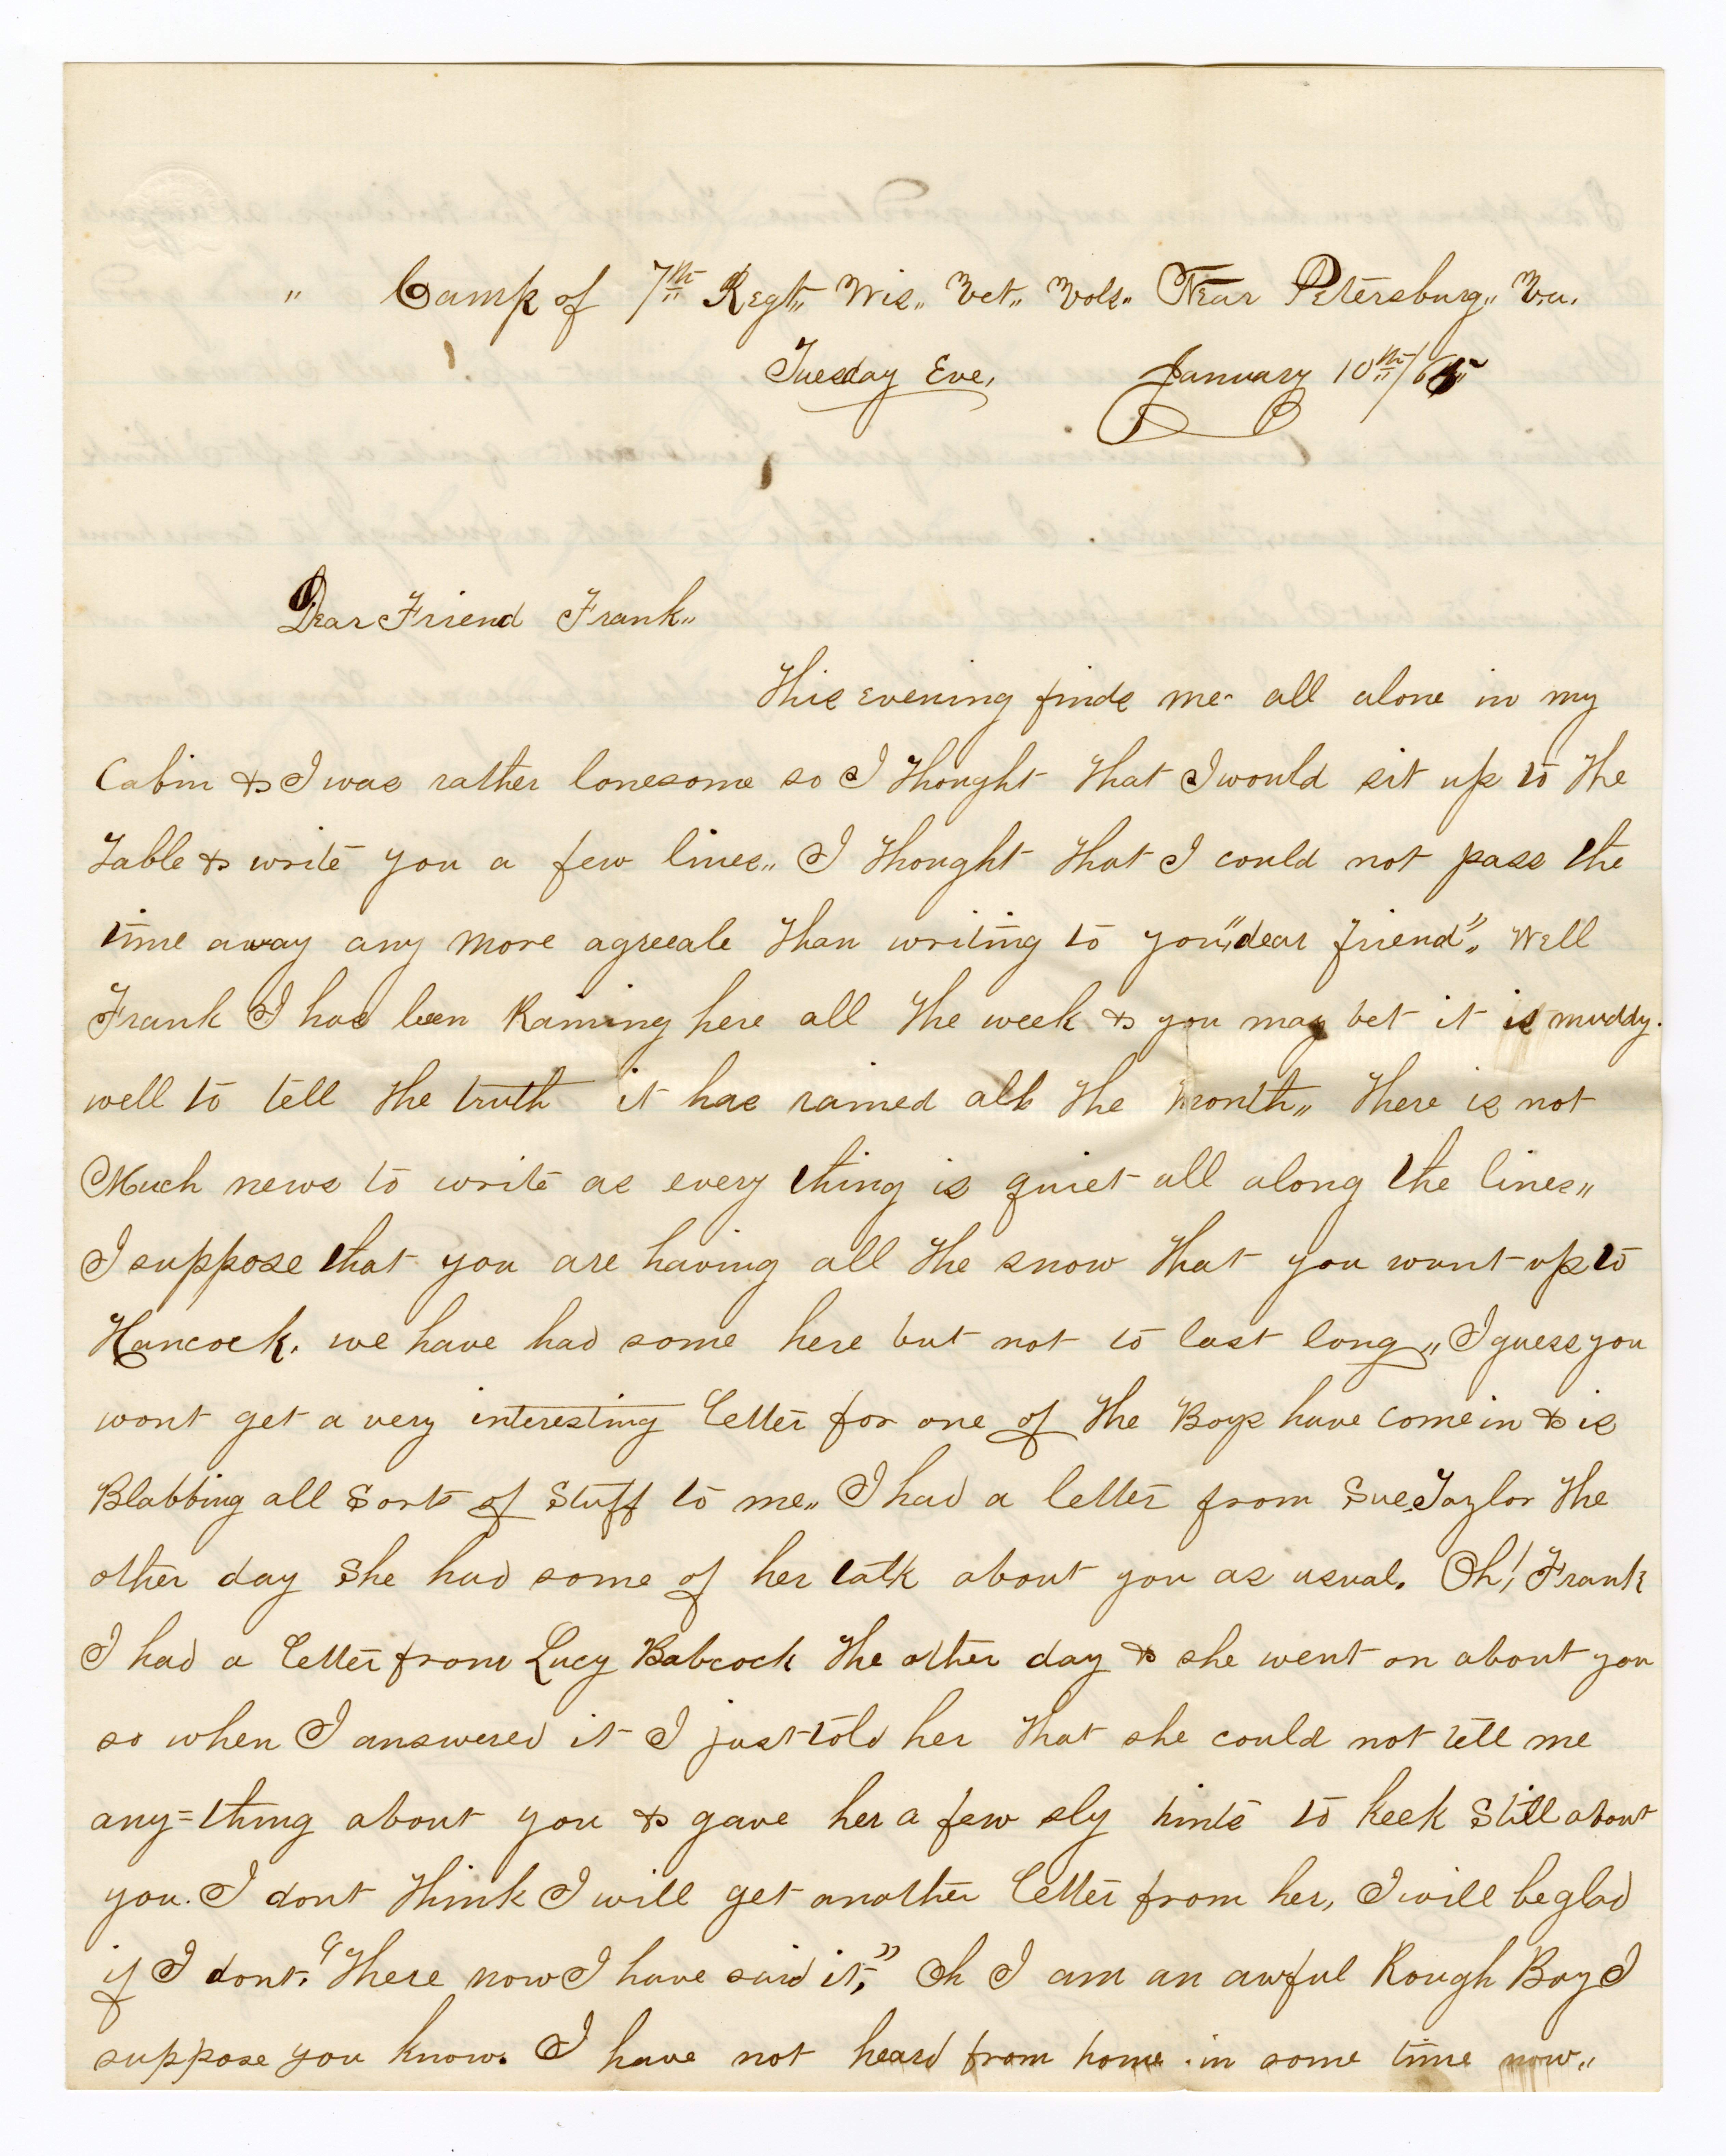 " Camp of 7th Regt,, Wis,, Vet,, Vols,, Near Petersburg,, Va.
Tuesday Eve, January 10th/65
Dear Friend Frank,,
This evening finds me all alone in my
Cabin & I was rather lonesome so I thought that I would sit up to the
table & write you a few lines,, I thought that I could not pass the
time away any more agreeale than writing to you,, "dear friend",, Well
Frank I has been Raining here all the week & you may bet it is muddy.
well to tell the truth it has rained all the month,, there is not
Much news to write as every thing is quiet all along the lines,,
I suppose that you are having all the snow that you want up to
Hancock. we have had some here but not to last long,, I guess you
wont get a very interesting letter for one of the Boys have come in & is
Blabbing all Sorts of Stuff to me,, I had a letter from Sue Taylor the
other day She had some of her talk about you as usual. Oh! Frank
I had a letter from Lucy Babcock the other day & she went on about you
so when I answered it I just told her that she could not tell me
any=thing about you & gave her a few sly hints to keek Still about
you. I dont think I will get another letter from her, I will be glad
if I dont. "There now I have said it," Oh I am an awful Rough Boy I
suppose you know. I have not heard from home in some time now,,